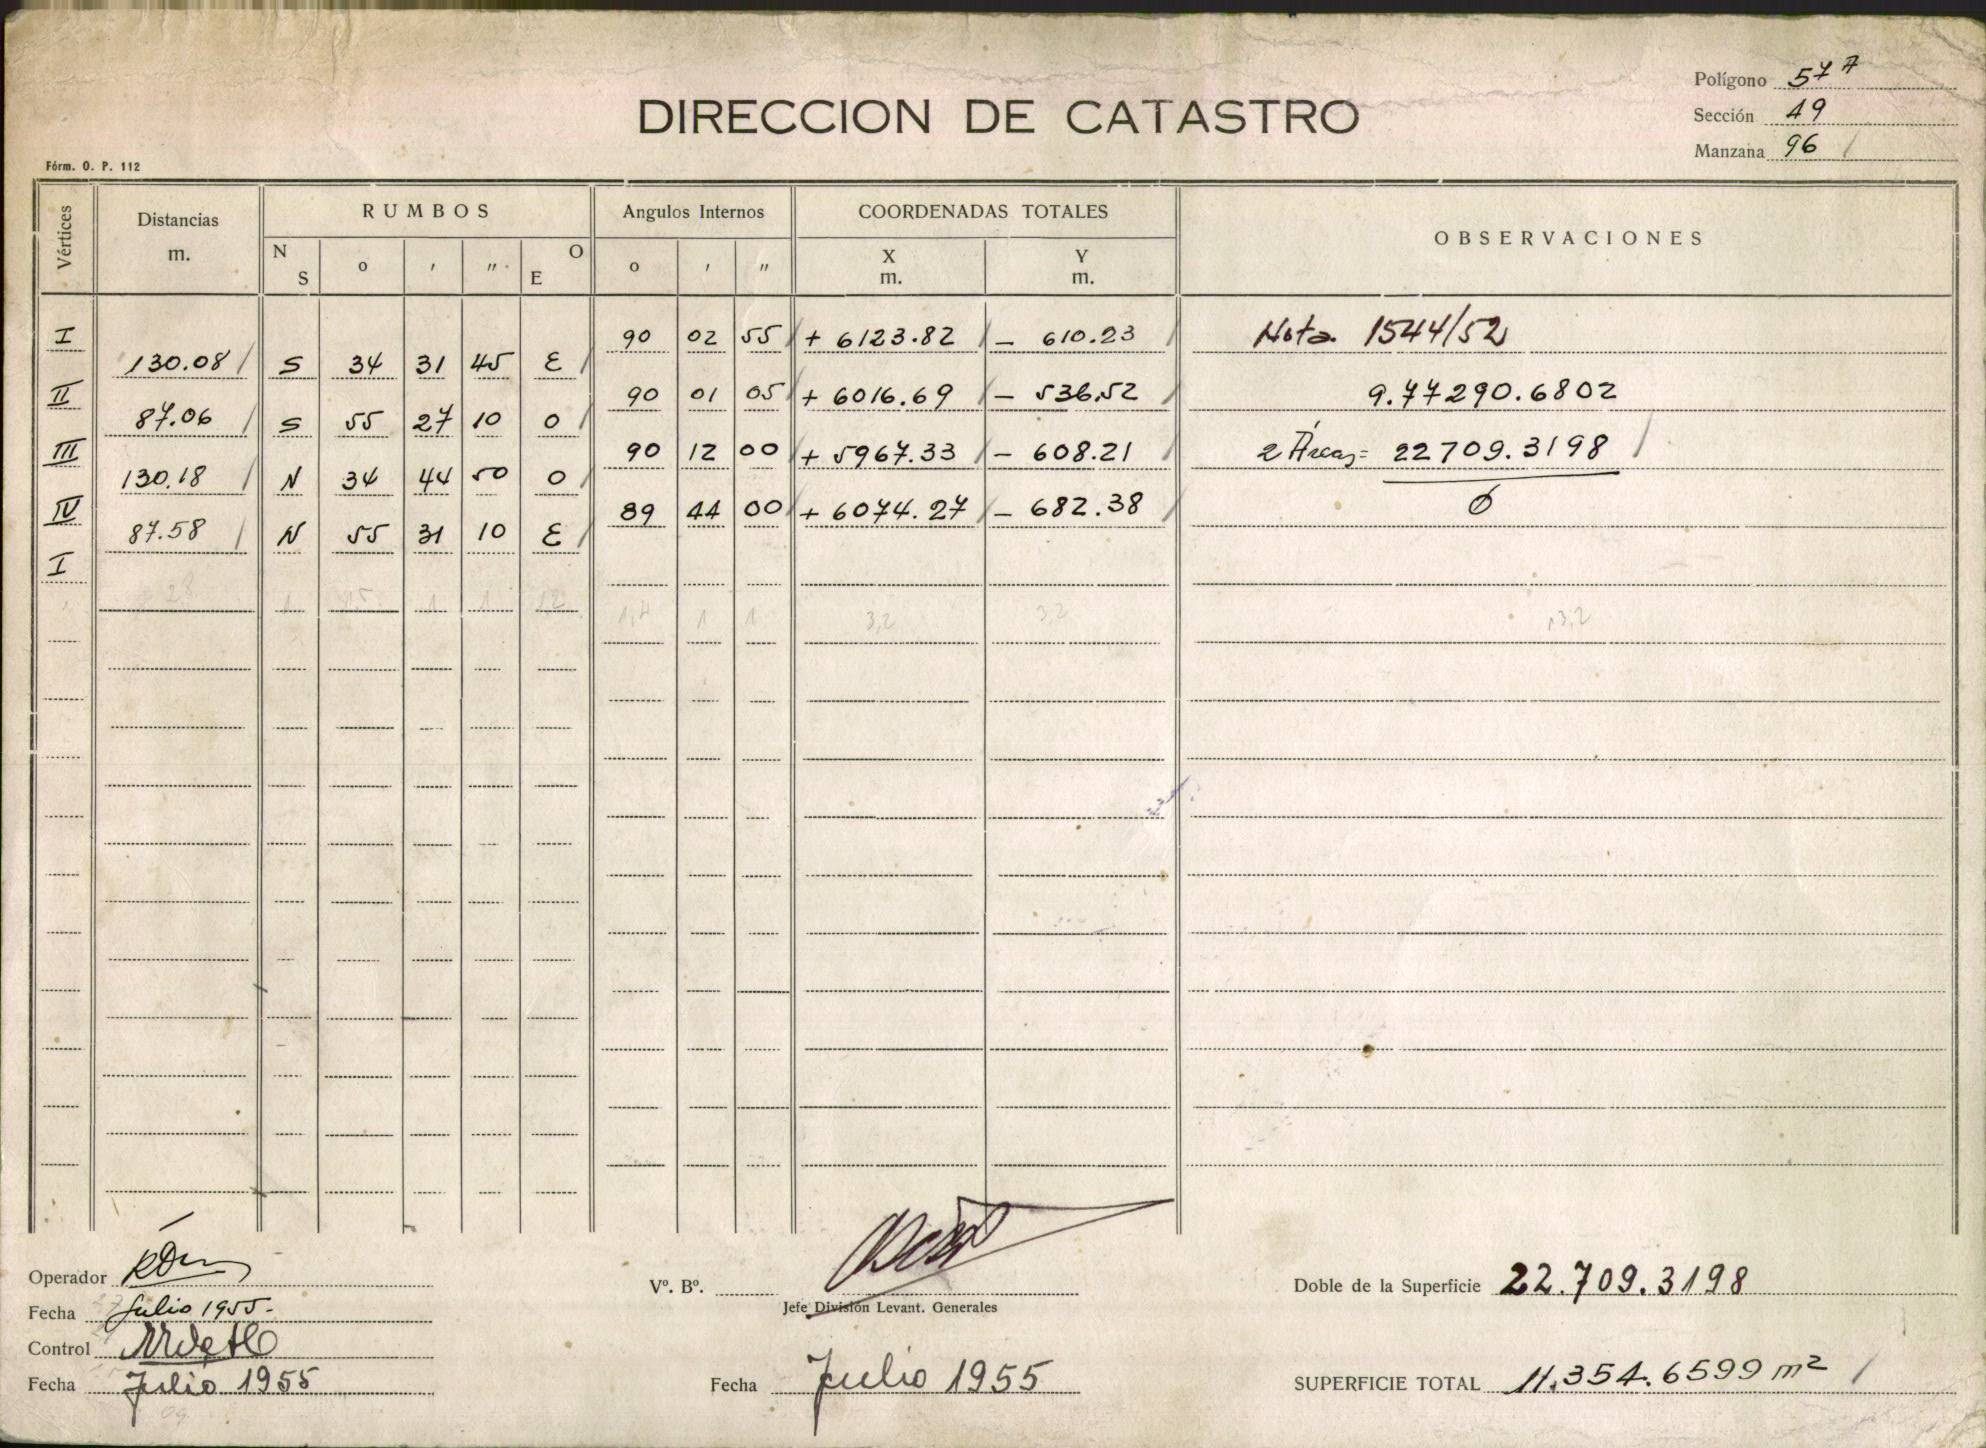 Polígono 57 A
DIRECCION DE CATASTRO
Sección 49
Manzana 96
Fórm. O. P. 112
Vértices Distancias m. RUMBOS N S o ' " O E Angulos Internos o ' " COORDENADAS TOTALES X m. Y m. OBSERVACIONES
I 90 02 55 + 6123.82 - 610.23 Nota. 1544/52
130.08 S 34 31 45 E
II 90 01 05 + 6016.69 - 536.52 9.77290.6802
87.06 S 55 27 10 O
III 90 12 00 + 5967.33 - 608.21 2 Áreas = 22709.3198
130.18 N 34 44 50 O
IV 89 44 00 + 6074.27 - 682.38
87.58 N 55 31 10 E
I
28 1 15 1 1 12
1,4 1 1 3,2 3,2 13,2
Operador
Fecha Julio 1955.-
Control
Fecha Julio 1955
Vº. Bº.
Jefe División Levant. Generales
Fecha Julio 1955
Doble de la Superficie 22.709.3198
SUPERFICIE TOTAL 11.354.6599 m²